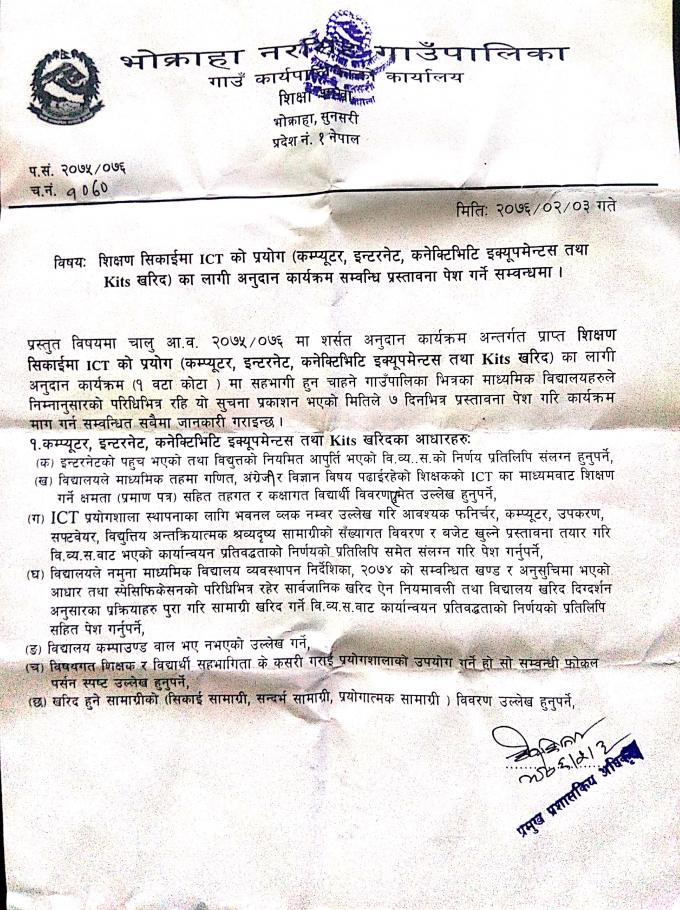 भोक्राहा नरसिंह गाउँपालिका
गाउँ कार्यपालिकाको कार्यालय
शिक्षा शाखा
भोक्राहा, सुनसरी
प्रदेश नं. १ नेपाल
प.सं. २०७५/०७६
च.नं. १०६०
मितिः २०७६/०२/०३ गते
विषयः शिक्षण सिकाईमा ICT को प्रयोग (कम्प्यूटर, इन्टरनेट, कनेक्टिभिटि इक्यूपमेन्टस तथा
Kits खरिद) का लागी अनुदान कार्यक्रम सम्वन्धि प्रस्तावना पेश गर्ने सम्वन्धमा ।
प्रस्तुत विषयमा चालु आ.व. २०७५/०७६ मा शर्सत अनुदान कार्यक्रम अन्तर्गत प्राप्त शिक्षण
सिकाईमा ICT को प्रयोग (कम्प्यूटर, इन्टरनेट, कनेक्टिभिटि इक्यूपमेन्टस तथा Kits खरिद) का लागी
अनुदान कार्यक्रम (१ वटा कोटा ) मा सहभागी हुन चाहने गाउँपालिका भित्रका माध्यमिक विद्यालयहरुले
निम्नानुसारको परिधिभित्र रहि यो सुचना प्रकाशन भएको मितिले ७ दिनभित्र प्रस्तावना पेश गरि कार्यक्रम
माग गर्न सम्वन्धित सबैमा जानकारी गराइन्छ ।
१.कम्प्यूटर, इन्टरनेट, कनेक्टिभिटि इक्यूपमेन्टस तथा Kits खरिदका आधारहरुः
(क) इन्टरनेटको पहुच भएको तथा विद्युतको नियमित आपुर्ति भएको वि.व्य..स.को निर्णय प्रतिलिपि संलग्न हुनुपर्ने,
(ख) विद्यालयले माध्यमिक तहमा गणित, अंग्रेजी र विज्ञान विषय पढाईरहेको शिक्षकको ICT का माध्यमवाट शिक्षण
गर्ने क्षमता (प्रमाण पत्र) सहित तहगत र कक्षागत विद्यार्थी विवरण समेत उल्लेख हुनुपर्ने,
(ग) ICT प्रयोगशाला स्थापनाका लागि भवनल व्लक नम्वर उल्लेख गरि आवश्यक फनिर्चर, कम्प्यूटर, उपकरण,
सफ्टवेयर, विद्युत्तिय अन्तक्रियात्मक श्रव्यदृष्य सामाग्रीको सँख्यागत विवरण र बजेट खुल्ने प्रस्तावना तयार गरि
वि.व्य.स.वाट भएको कार्यान्वयन प्रतिवद्धताको निर्णयको प्रतिलिपि समेत संलग्न गरि पेश गर्नुपर्ने,
(घ) विद्यालयले नमुना माध्यमिक विद्यालय व्यवस्थापन निर्देशिका, २०७४ को सम्वन्धित खण्ड र अनुसुचिमा भएको
आधार तथा स्पेसिफिकेसनको परिधिभित्र रहेर सार्वजानिक खरिद ऐन नियमावली तथा विद्यालय खरिद दिग्दर्शन
अनुसारका प्रक्रियाहरु पुरा गरि सामाग्री खरिद गर्ने वि.व्य.स.वाट कार्यान्वयन प्रतिवद्धताको निर्णयको प्रतिलिपि
सहित पेश गर्नुपर्ने,
(ङ) विद्यालय कम्पाउण्ड वाल भए नभएको उल्लेख गर्ने,
(च) विषयगत शिक्षक र विद्यार्थी सहभागिता के कसरी गराई प्रयोगशालाको उपयोग गर्ने हो सो सम्वन्धी फोकल
पर्सन स्पष्ट उल्लेख हुनुपर्ने,
(छ) खरिद हुने सामाग्रीको (सिकाई सामाग्री, सन्दर्भ सामाग्री, प्रयोगात्मक सामाग्री ) विवरण उल्लेख हुनुपर्ने,
प्रमुख प्रशासकिय अधिकृत